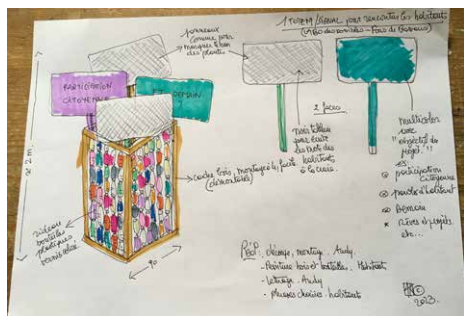 1 TOTEM/SIGNAL pour rencontrer les habitants
panneaux
comme pour
marquer le nom
des plantes
PARTICIPATION
CITOYENNE
ET DEMAIN
?
2 faces
noir tableau
pour écrire
des mots des
habitants
à la craie.
multicolore
avec
"objectif du
projet"
participation
citoyenne
parole d'habitant
demain
rêves et projets
etc...
cadre bois, montage facile
(démontable)
rideau
bouteilles
plastiques
± 2 m
90
découpe, montage. Andy
- Peinture bois et bouteilles. Habitant
- lettrage. Andy
- phrases choisies. habitants
2023.